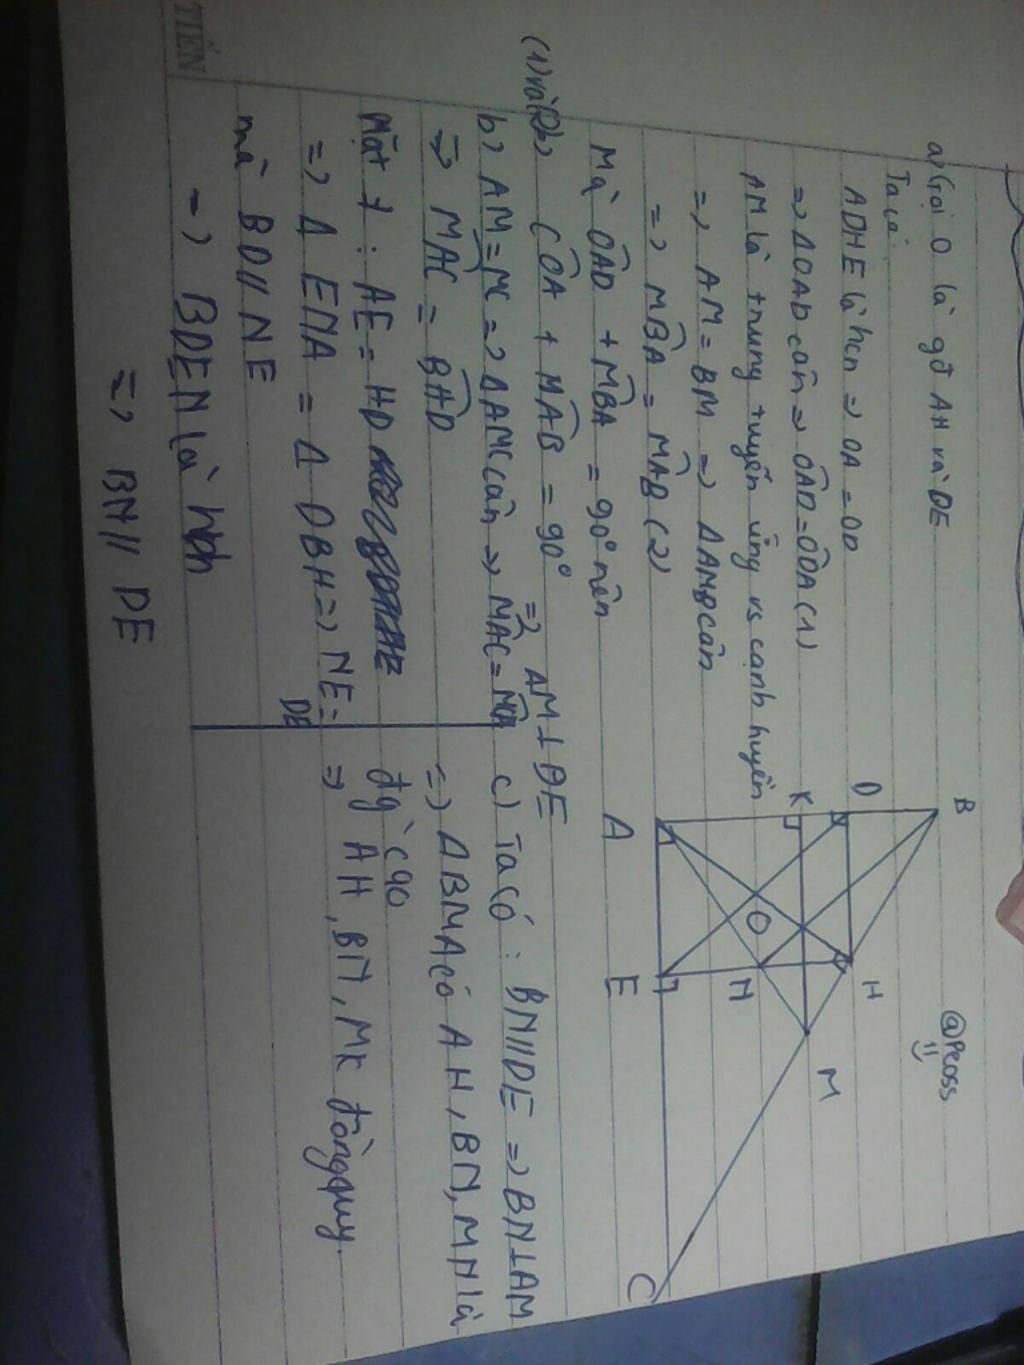 a) Gọi O là gđ AH và DE
Ta có
ADHE là hcn => OA = OD
=> ΔOAD cân => OAD = ODA (1)
AM là trung tuyến ứng vs cạnh huyền
=> AM = BM => ΔAMB cân
=> MBA = MAB (2)
Mà OAD + MBA = 90° nên
(1) và (2) => ODA + MAB = 90°
=> AM ⊥ DE
b) AM = MC => ΔAMC cân => MAC = MCA
=> MAC = BHD
Mặt ≠ : AE = HD
=> Δ ENA = Δ DBH => NE =
DB
mà BD // NE
=> BDEN là hbh
=> BN // DE
c) Ta có : BN // DE => BN ⊥ AM
=> ΔBMA có AH, BN, MK là
đg cao
=> AH, BN, MK đồng quy.
@Pcoss
B
D
K
A
H
M
O
N
E
C
TIẾN